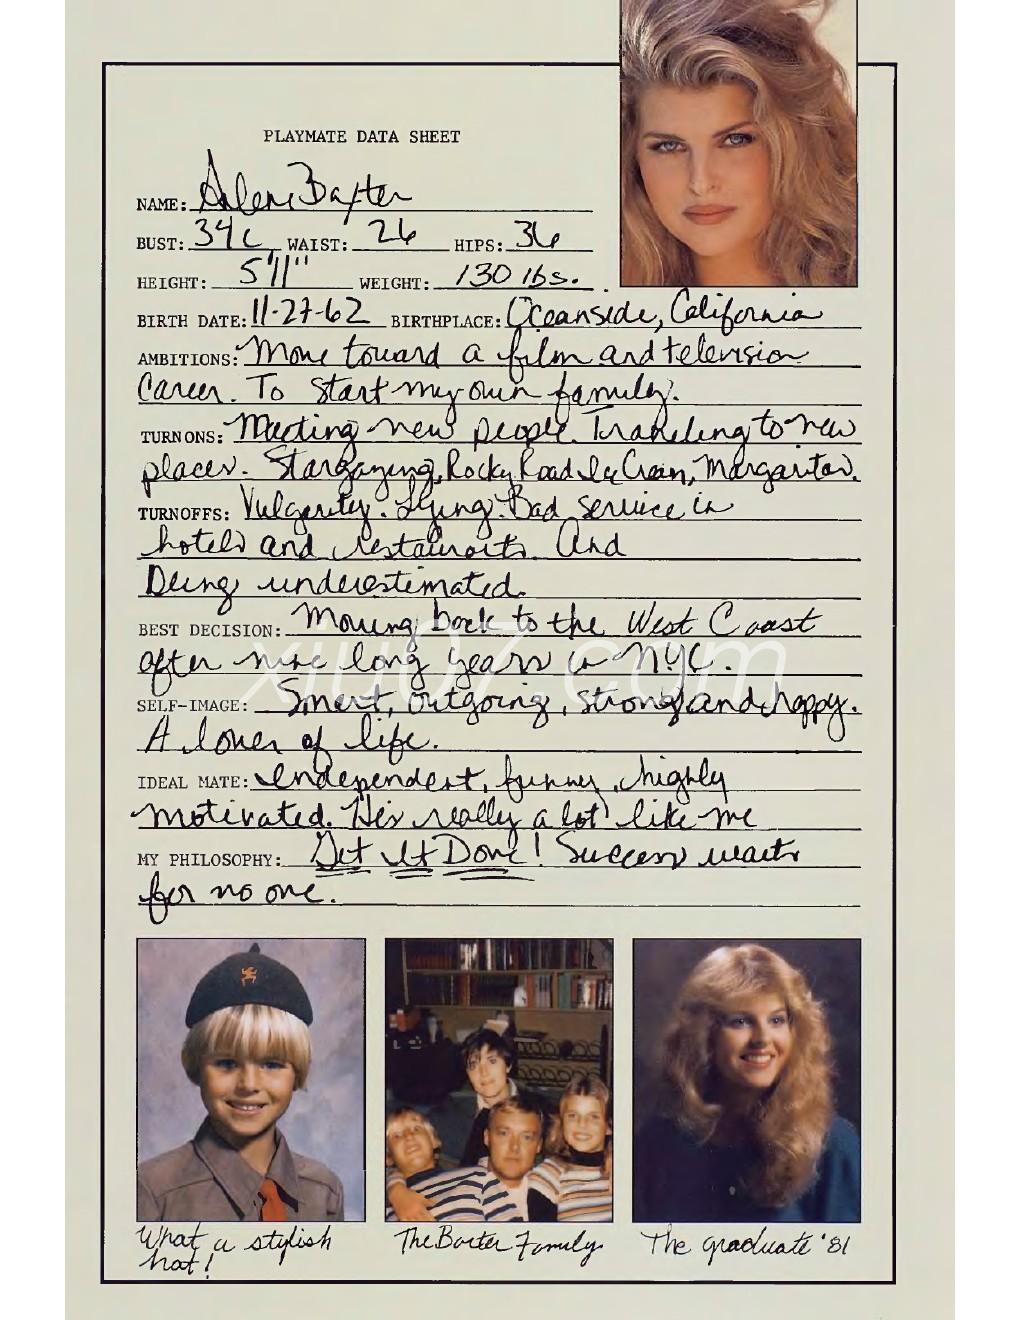 PLAYMATE DATA SHEET
NAME: Arlene Baxter
BUST: 34C WAIST: 26 HIPS: 36
HEIGHT: 5'11" WEIGHT: 130 lbs.
BIRTH DATE: 11-27-62 BIRTHPLACE: Oceanside, California
AMBITIONS: Move toward a film and television
Career. To start my own family.
TURN ONS: Meeting new people. Traveling to new
places. Stargazing, Rocky Road Ice Cream, Margaritas.
TURNOFFS: Vulgarity. Lying. Bad service in
hotels and restaurants. And
Being underestimated.
BEST DECISION: Moving back to the West Coast
after nine long years in NYC.
xiu07.com
SELF-IMAGE: Smart, outgoing, strong and happy.
A lover of life.
IDEAL MATE: Independent, funny, highly
motivated. He's really a lot like me
MY PHILOSOPHY: Get It Done! Success waits
for no one.
What a stylish
hat!
The Baxter Family
The graduate '81